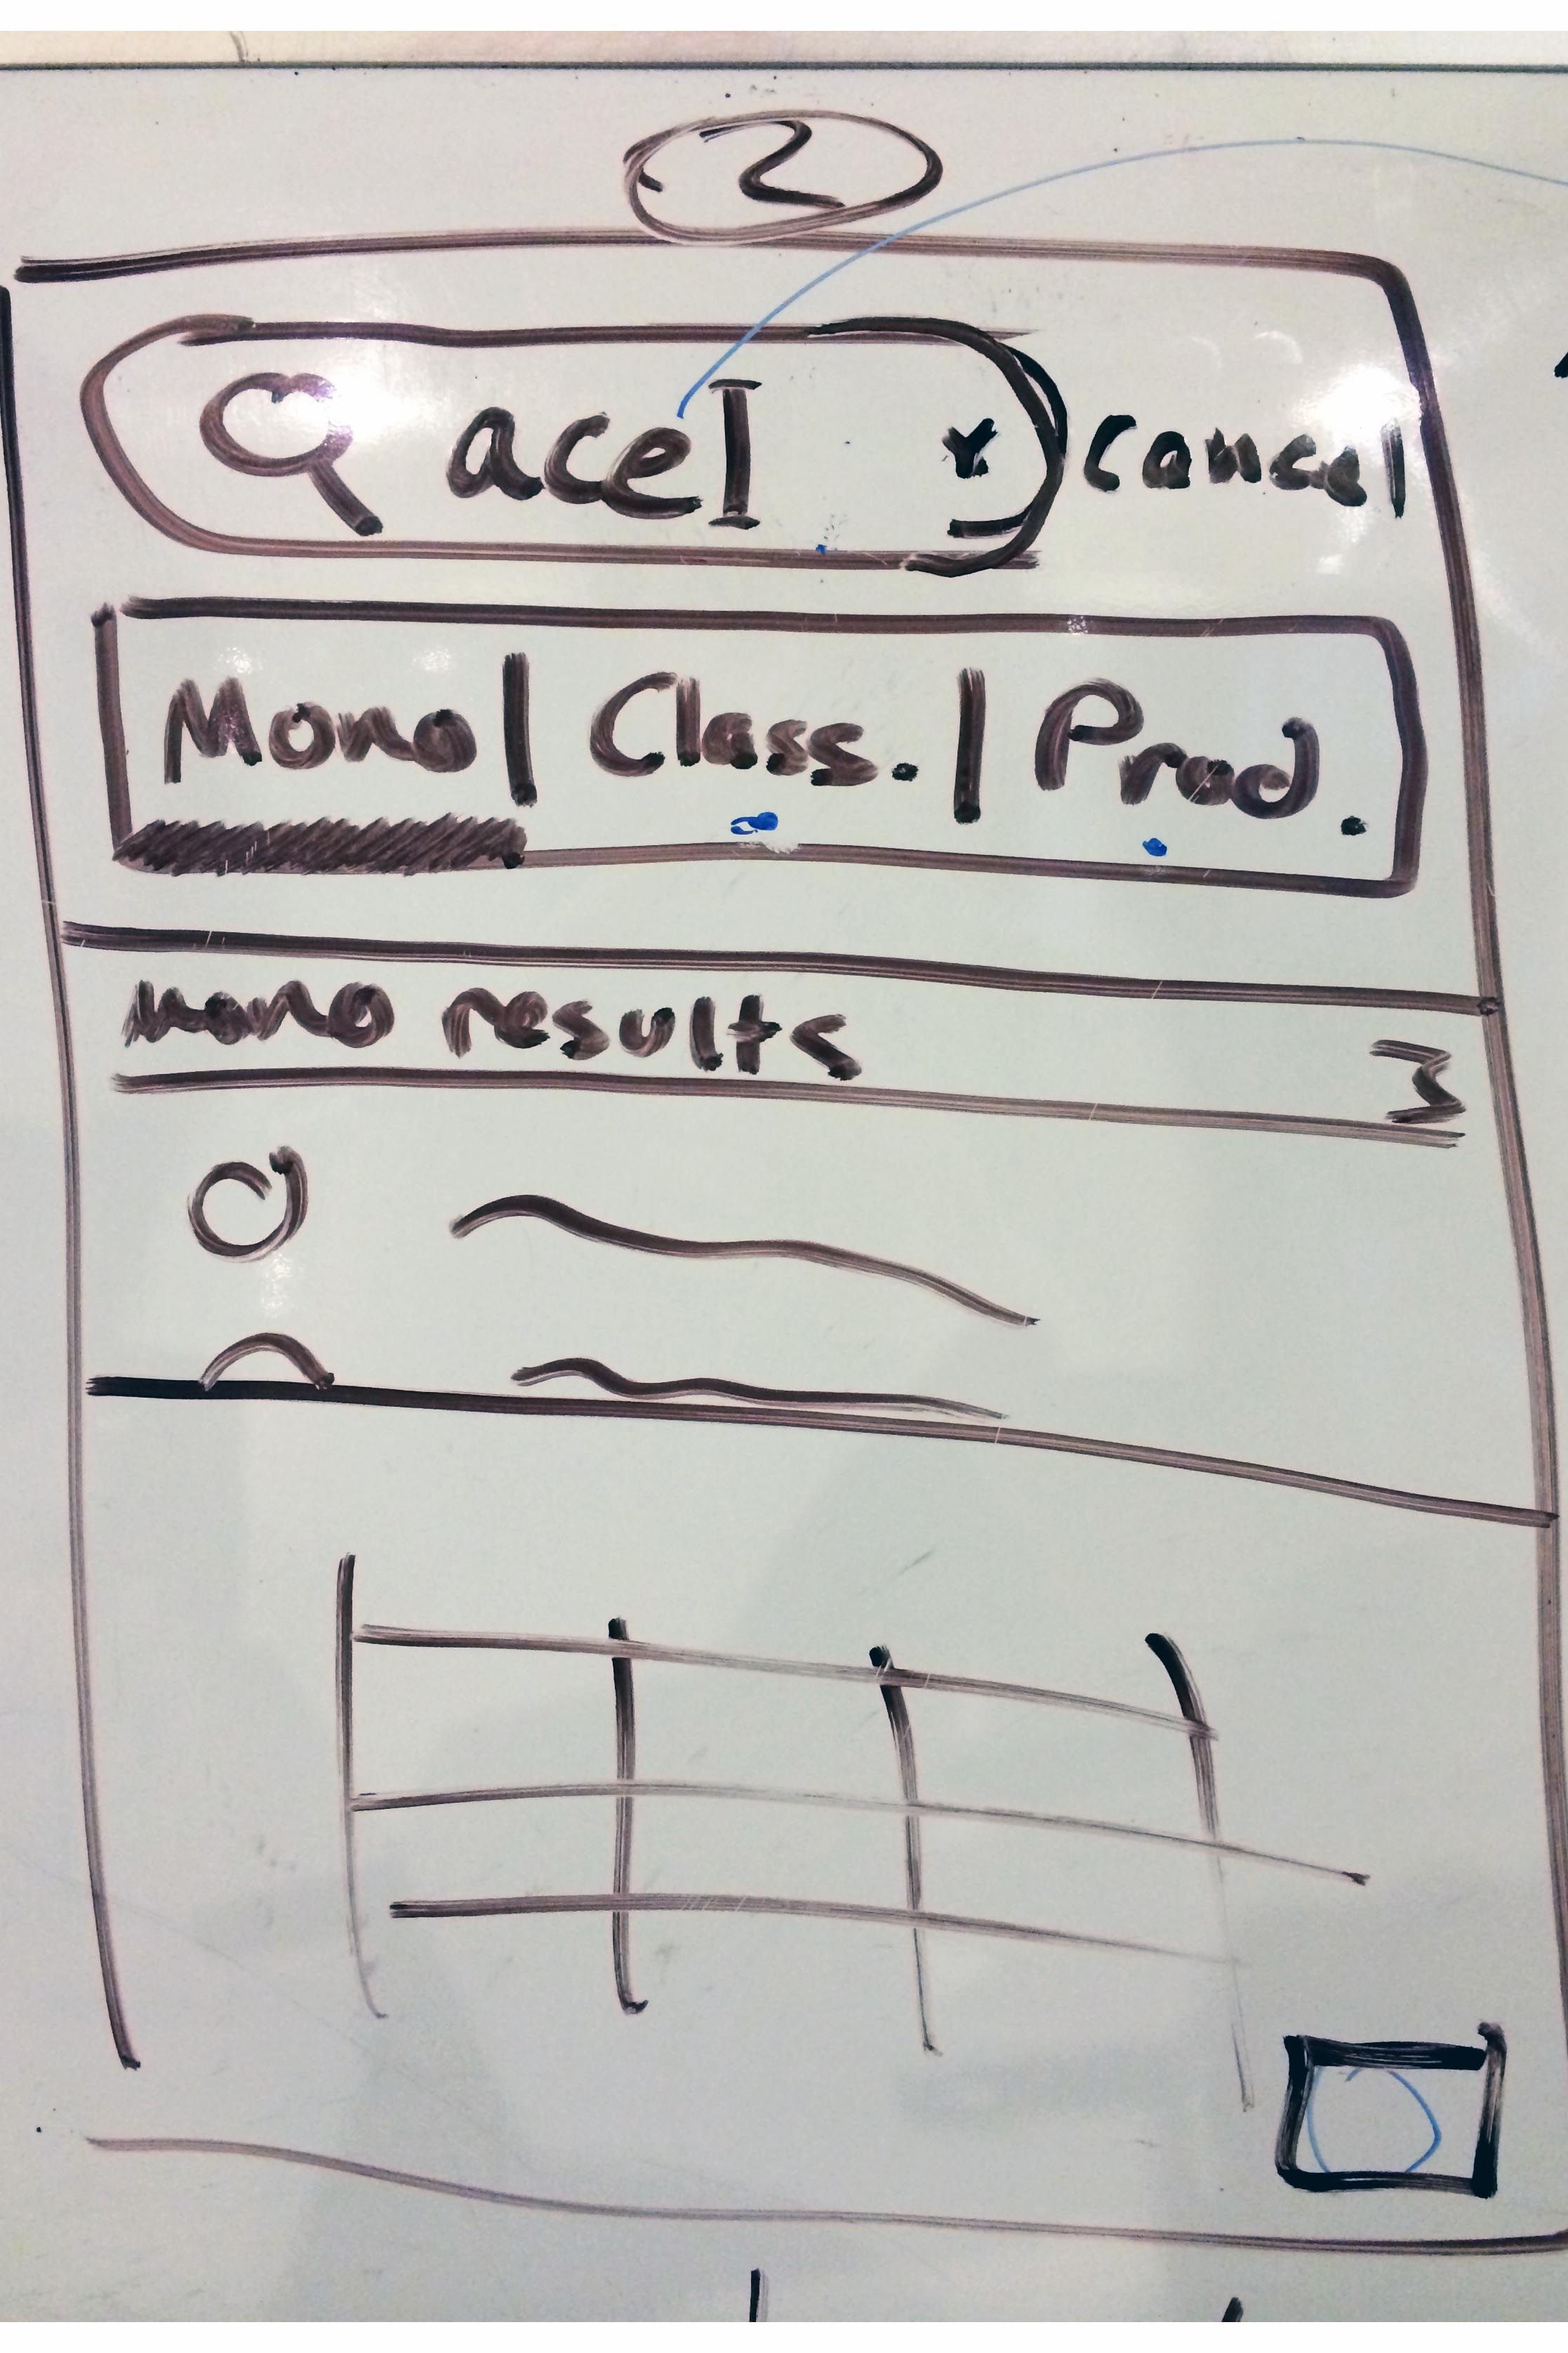 2
ace x cancel
Mono | Class. | Prod.
mono results 3